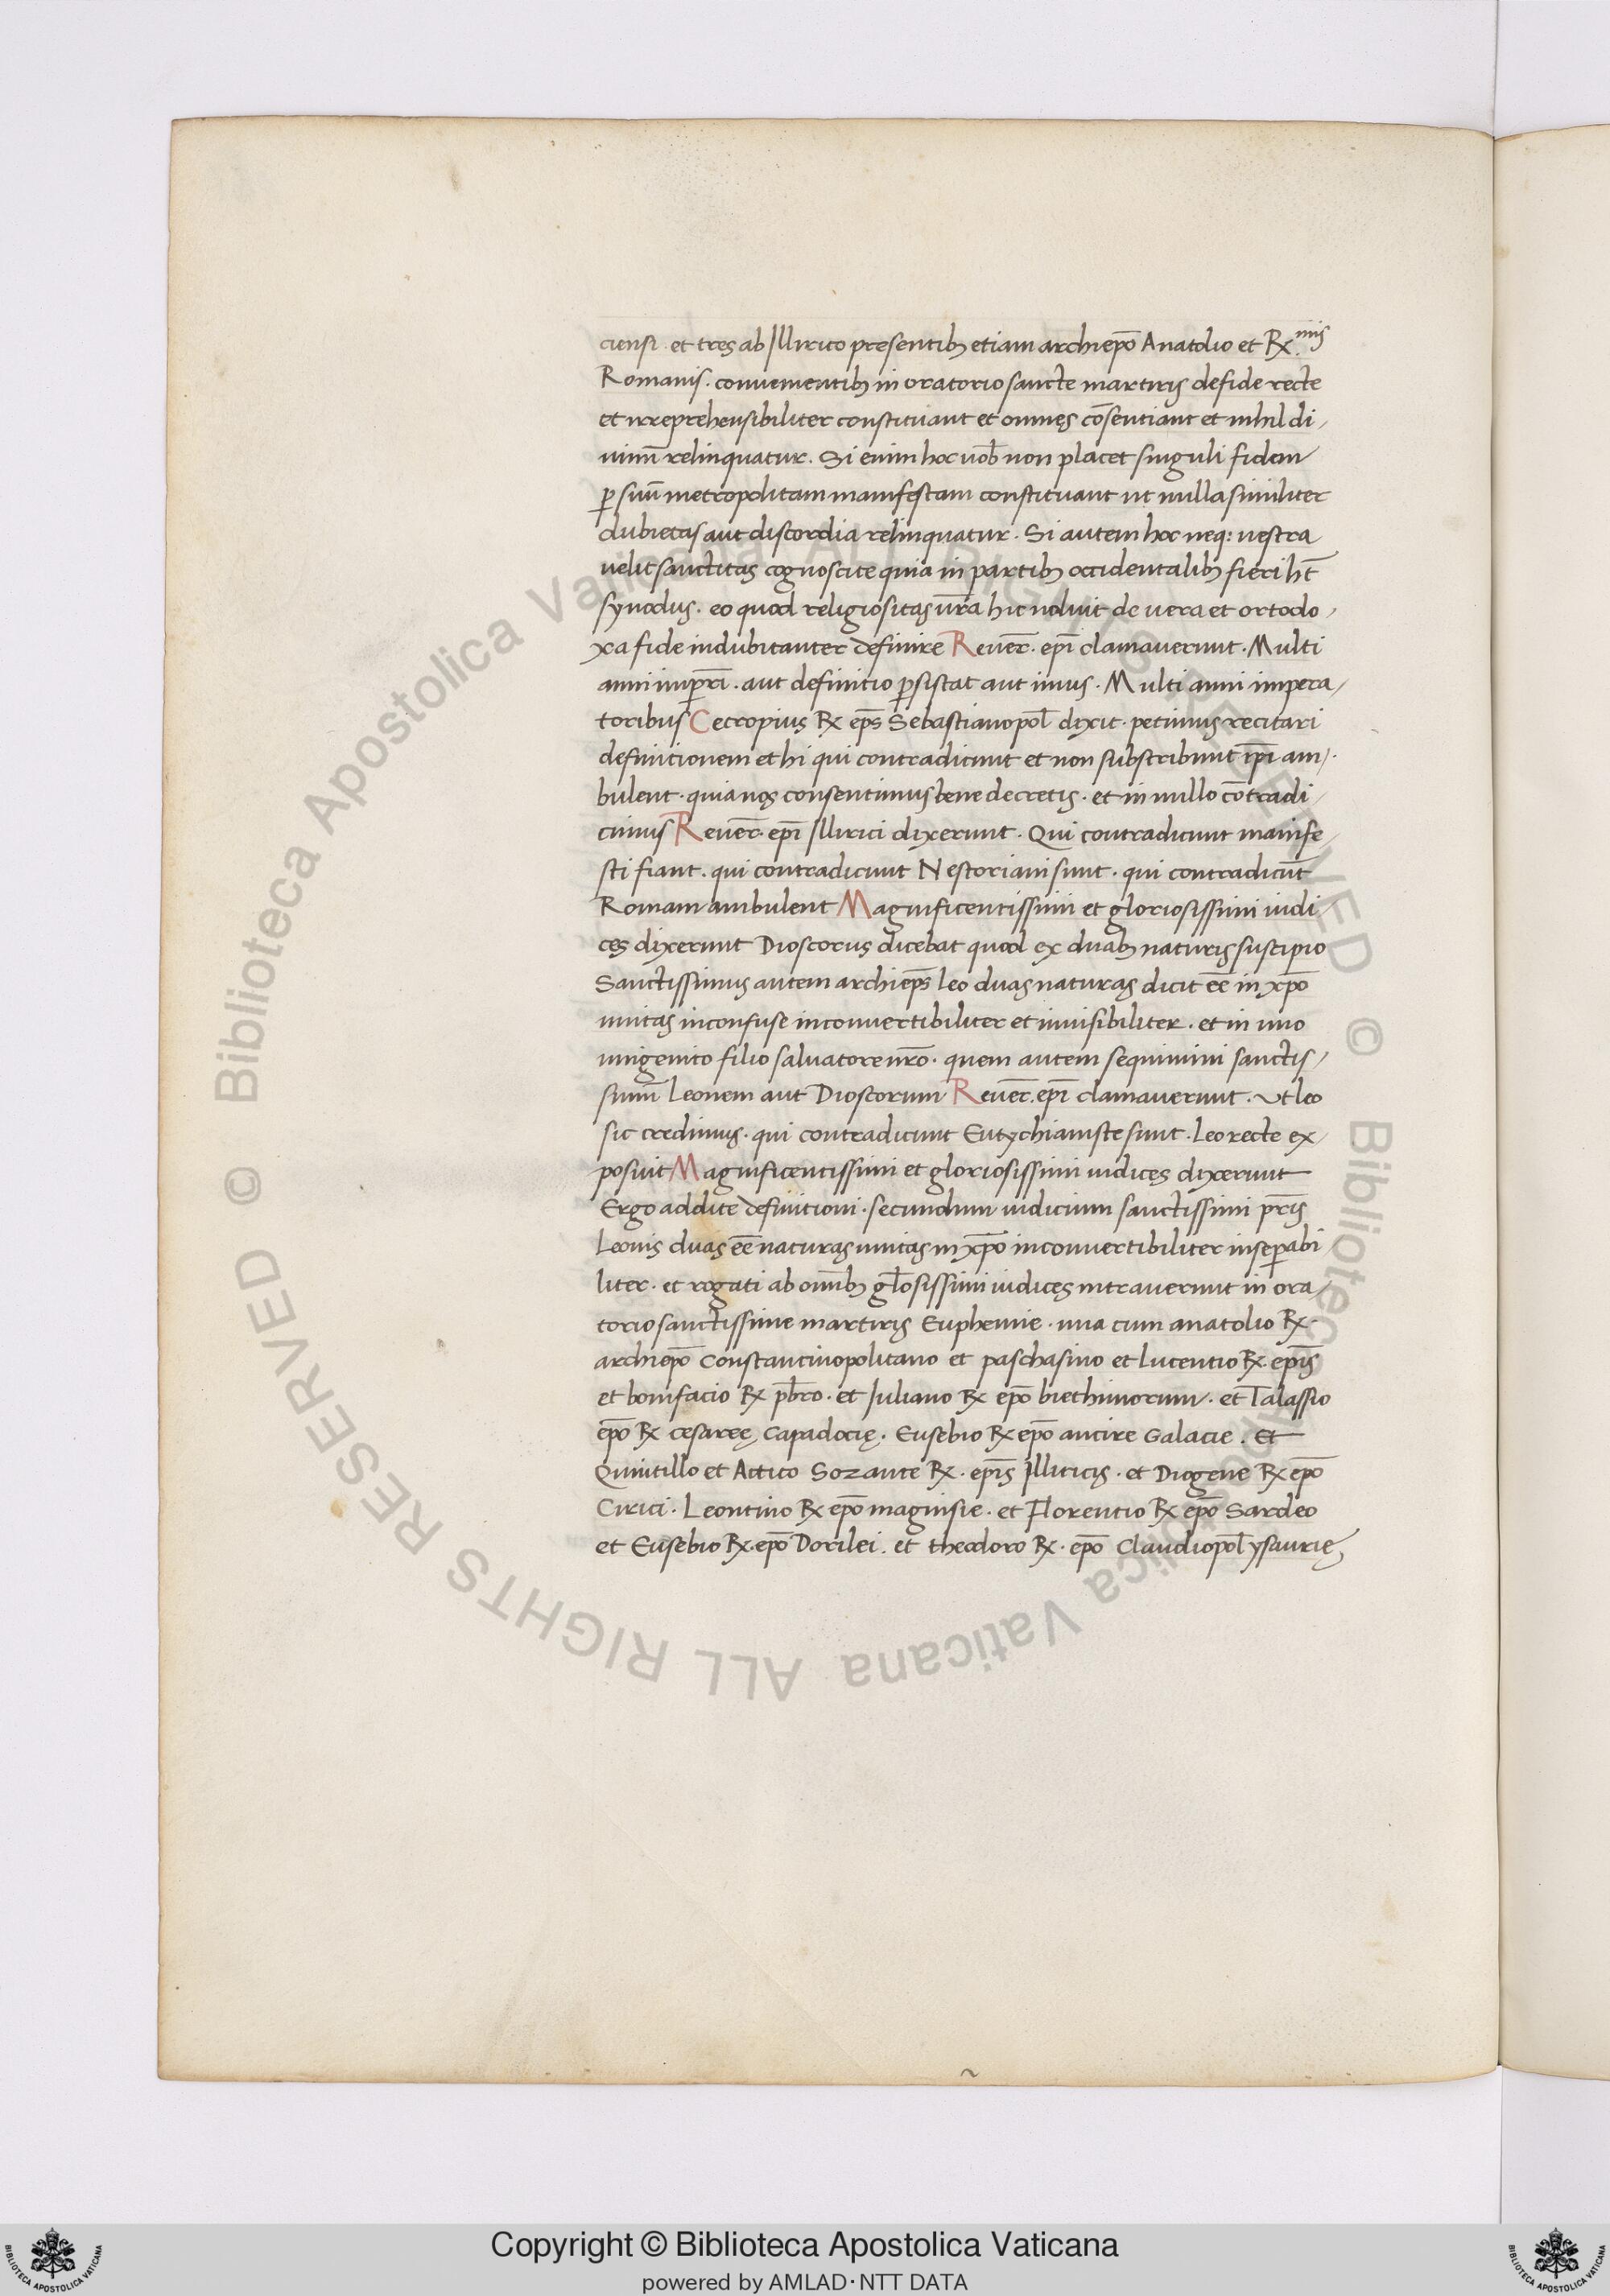 ciensi · et tres ab Illirico presentibꝫ etiam archiep̄o Anatolio et R̄x.mis
Romanis · convenientibꝫ in oratorio sancte martiris de fide recte
et irreprehensibiliter constituant et omnes cōsentiant et nihil di
uinū relinquatur. Si enim hoc uob̄ non placet singuli fidem
ꝑ suū metropolitam manifestam constituant ut nulla similiter
dubietas aut discordia relinquatur. Si autem hoc neq: uestra
uelit sanctitas cognoscite quia in partibꝫ occidentalibꝫ fieri h̄t
synodus. eo quod religiositas ūra hic noluit de uera et ortodo
xa fide indubitanter definire Reuer̄. ep̄i clamauerunt. Multi
anni imꝑr̄i. aut definitio ꝑsistat aut imus. Multi anni impera
toribus Cecropius Rx ep̄s Sebastianopol̄ dixit. petimus recitari
definitionem et hi qui contradicunt et non subscribunt ip̄i am
bulent. quia nos consentimus bene decretis. et in nullo cōtradi
cimus Reuer̄. ep̄i Illirici dixerunt. Qui contradicunt manife
sti fiant. qui contradicunt Nestoriani sunt. qui contradicūt
Romam ambulent Magnificentissimi et gloriosissimi iudi
ces dixerunt Dioscorus dicebat quod ex duabꝫ naturis suscipio
Sanctissimus autem archiep̄s Leo duas naturas dicit ēē in xp̄o
unitas inconfuse inconuertibiliter et inuisibiliter. et in uno
unigenito filio saluatore nr̄o. quem autem sequimini sanctis
simū Leonem aut Dioscorum Reuer̄. ep̄i clamauerunt. Ut leo
sic credimus. qui contradicunt Eutychianiste sunt. Leo recte ex
posuit Magnificentissimi et gloriosissimi iudices dixerunt
Ergo addite definitioni. secundum iudicium sanctissimi pr̄is
Leonis duas ēē naturas unitas in xp̄o inconuertibiliter inseꝑabi
liter. et rogati ab om̄ibꝫ gl̄osissimi iudices intrauerunt in ora
torio sanctissime martiris Euphemie. una cum anatolio Rx.
archiep̄o Constantinopolitano et paschasino et lucentio Rx. ep̄is
et bonifacio Rx pb̄ro. et Juliano Rx ep̄o biethinorum. et Talassio
ep̄o Rx cesareę Capadocię. Eusebio Rx ep̄o ancire Galacie. Et
Quintillo et Attico Sozante Rx. ep̄is Illiricis. et Diogene Rx ep̄o
Cirici. Leontino Rx ep̄o maginsie. et Florentio Rx ep̄o Sardeo
et Eusebio Rx. ep̄o Dorilei. et theodoro Rx. ep̄o Claudiopol̄ ysaurię
© Biblioteca Apostolica Vaticana ALL RIGHTS RESERVED © Biblioteca Apostolica Vaticana ALL RIGHTS RESERVED
Copyright © Biblioteca Apostolica Vaticana
powered by AMLAD·NTT DATA
BIBLIOTECA APOSTOLICA VATICANA
BIBLIOTECA APOSTOLICA VATICANA